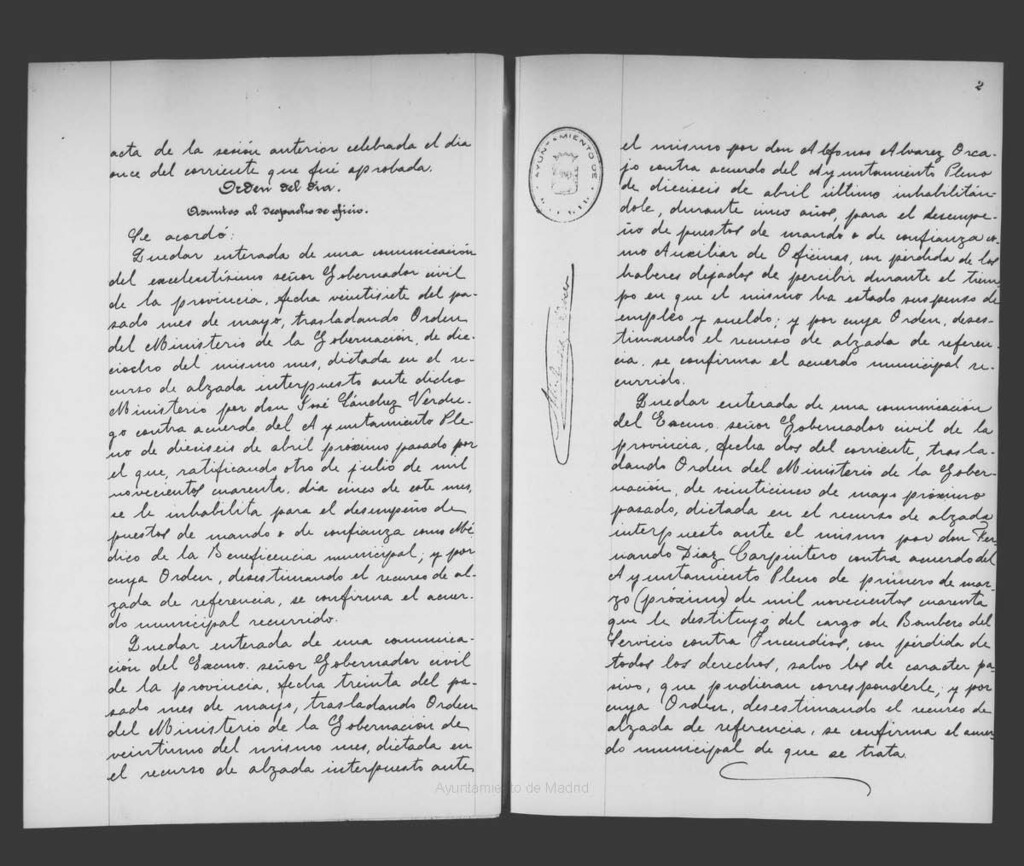 acta de la sesión anterior celebrada el día
once del corriente que fué aprobada.
Orden del día.
Asuntos al despacho de oficio.
Se acordó:
Quedar enterada de una comunicación
del excelentísimo señor Gobernador civil
de la provincia, fecha veintisiete del pa-
sado mes de mayo, trasladando Orden
del Ministerio de la Gobernación, de die-
ciocho del mismo mes, dictada en el re-
curso de alzada interpuesto ante dicho
Ministerio por don José Sánchez Verdu-
go contra acuerdo del Ayuntamiento Ple-
no de dieciseis de abril próximo pasado por
el que, ratificando otro de julio de mil
novecientos cuarenta, día cinco de este mes,
se le inhabilita para el desempeño de
puestos de mando o de confianza como Mé-
dico de la Beneficencia municipal; y por
cuya Orden, desestimando el recurso de al-
zada de referencia, se confirma el acuer-
do municipal recurrido.
Quedar enterada de una comunica-
ción del Excmo. señor Gobernador civil
de la provincia, fecha treinta del pa-
sado mes de mayo, trasladando Orden
del Ministerio de la Gobernación de
veintiuno del mismo mes, dictada en
el recurso de alzada interpuesto ante
2
AYUNTAMIENTO DE
el mismo por don Alfonso Alvarez Orca-
jo contra acuerdo del Ayuntamiento Pleno
de dieciseis de abril último inhabilitán-
dole, durante cinco años, para el desempe-
ño de puestos de mando o de confianza co-
mo Auxiliar de Oficinas, con pérdida de los
haberes dejados de percibir durante el tiem-
po en que el mismo ha estado suspenso de
empleo y sueldo; y por cuya Orden, deses-
timando el recurso de alzada de referen-
cia, se confirma el acuerdo municipal re-
currido.
Quedar enterada de una comunicación
del Excmo. señor Gobernador civil de la
provincia, fecha dos del corriente, trasla-
dando Orden del Ministerio de la Gober-
nación, de veinticinco de mayo próximo
pasado, dictada en el recurso de alzada
interpuesto ante el mismo por don Fer-
nando Díaz Carpintero contra acuerdo del
Ayuntamiento Pleno de primero de mar-
zo (próximo) de mil novecientos cuarenta
que le destituyó del cargo de Bombero del
Servicio contra Incendios, con pérdida de
todos los derechos, salvo los de caracter pa-
sivo, que pudieran corresponderle; y por
cuya Orden, desestimando el recurso de
alzada de referencia, se confirma el acuer-
do municipal de que se trata.
Ayuntamiento de Madrid